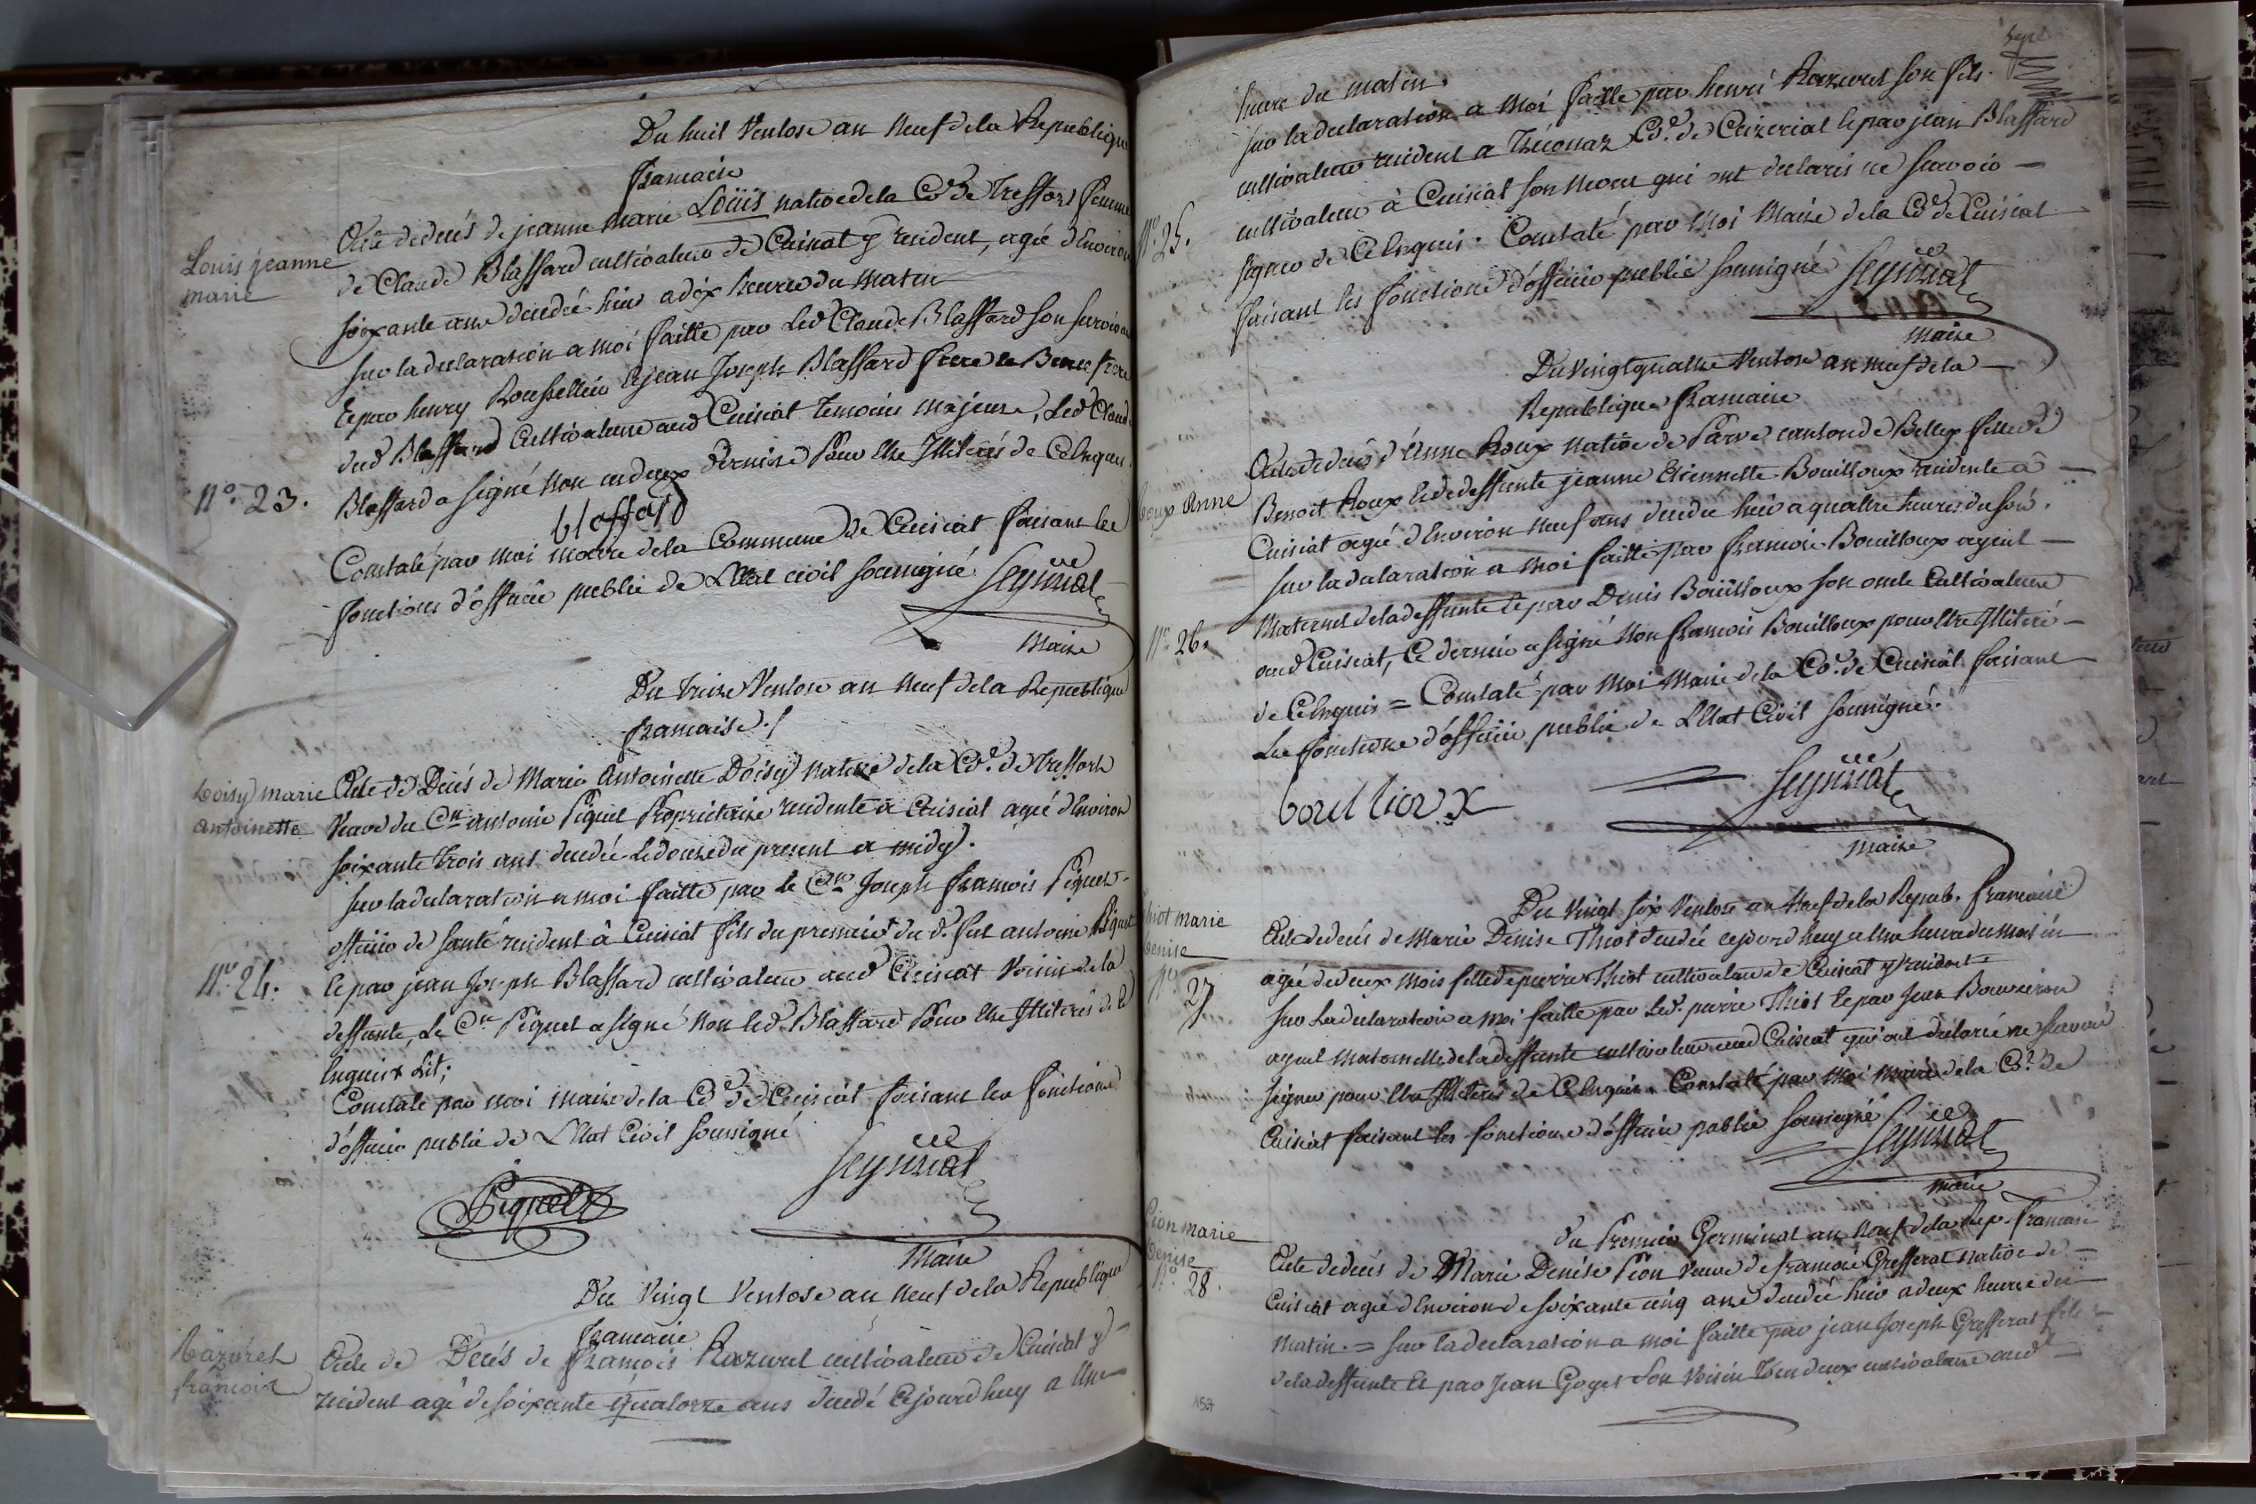 Du huit Ventose an Neuf de la Republique
francaise
Louis jeanne
marie
Acte de decés de jeanne marie Loüis native de la Cne de Treffort femme
de Claude Blaffard cultivateur de Cuisiat y resident, agée d'Environ
soixante ans decedée hier a dix heures du Matin
sur la declaration a moi faitte par led Claude Blaffard son
Et par henry Rousselleur et jean Joseph Blaffard frere et Beau frere
dud Blaffard Cultivateurs aud Cuisiat temoins Majeurs, Led Claude
N°. 23.
Blaffard a signé Non les deux derniers Pour Etre Illiterés de Ce Enquis.
blaffard
Constaté par Moi maire de la Commune de Cuisiat faisant les
fonctions d'officier public de L'Etat civil soussigné
Maire
Du treize Ventose an Neuf de la Republique
francaise ./
Loisy marie
antoinette
Acte de Decés de Marie Antoinette Loisy Native de la Cne. de Treffort
Veuve du Cen antoine Piquet Propriétaire residente a Cuisiat agée d'Environ
soixante trois ans decedée Le douze du present a midy.
sur la declaration a moi faitte par le Cen Joseph francois Piquet
officier de santé resident â Cuisiat fils du premier du d. fut antoine Piquet
N°. 24.
Et par jean Joseph Blaffard cultivateur aud Cuisiat Voisin de la
deffunte, Le Cen Piquet a signé Non led. Blaffard Pour Etre Illiterés de Ce
Enquis Lit;
Constaté par moi maire de la Cne de Cuisiat faisant les fonctions
d'officier public de L'Etat Civil soussigné
Piquet
Maire
Du Vingt Ventose an neuf de la Republique
francaise
Razurel
francois
Acte de Decés de francois Razurel cultivateur de Cuisiat y
resident agé de soixante quatorze ans decedé Cejourdhuy a Une
heure du matin.
sur la declaration a Moi faitte par henri Razurel son fils
cultivateur resident a Cne. de Et par jean Blaffard
N°. 25.
cultivateur à Cuisiat son Neveu qui ont declarés ne scavoir
signer de Ce Enquis. Constaté par Moi Maire de la Cne de Cuisiat
faisant les fonctions d'officier public soussigné
Maire
Du Vingt quatre Ventose an neuf de la
Republique francaise
Roux Anne
Acte de decés d'Anne Roux Native de Parve canton de Belley fille de
Benoit Roux et de deffunte jeanne Etiennette Bouilloux residente â
Cuisiat agée d'Environ neuf ans decedée hier a quattre heures du soir.
sur la declaration a moi faitte par francois Bouilloux ayeul
N°. 26.
Maternel de la deffunte Et par Denis Bouilloux son oncle Cultivateurs
aud Cuisiat, Ce dernier a signé Non francois Bouilloux pour Etre Illiteré
de Ce Enquis = Constaté par Moi Maire de la Cne. de Cuisiat faisant
Les fonctions d'officier public de L'Etat Civil soussigné.
bouilloux
Maire
Du Vingt six Ventose an Neuf de la Repub. francaise
Thiot marie
denise
Acte de decés de Marie Denise Thiot decedée cejourdhuy a Une heure du matin
N°. 27
agée de deux mois fille de pierre Thiot cultivateur de Cuisiat y residante
sur La declaration a moi faitte par Led. pierre Thiot Et par Jean
ayeul maternelle de la deffunte cultivateurs aud Cuisiat qui ont declaré ne scavoir
signer pour Etre Illiterés de Ce Enquis. Constaté par Moi Maire de la Cne. de
Cuisiat faisant les fonctions d'officier public soussigné
Maire
du Premier Germinal an Neuf de la Rep. francaise
Pion marie
denise
N°. 28.
Acte de decés de Marie Denise Pion Veuve de francois Grefferat native de
Cuisiat agée d'Environ de soixante cinq ans decedée hier a deux heures du
Matin. = sur la declaration a moi faitte par jean Joseph Grefferat fils
de la deffunte Et par Jean Goyet Son Voisin tous deux cultivateurs aud